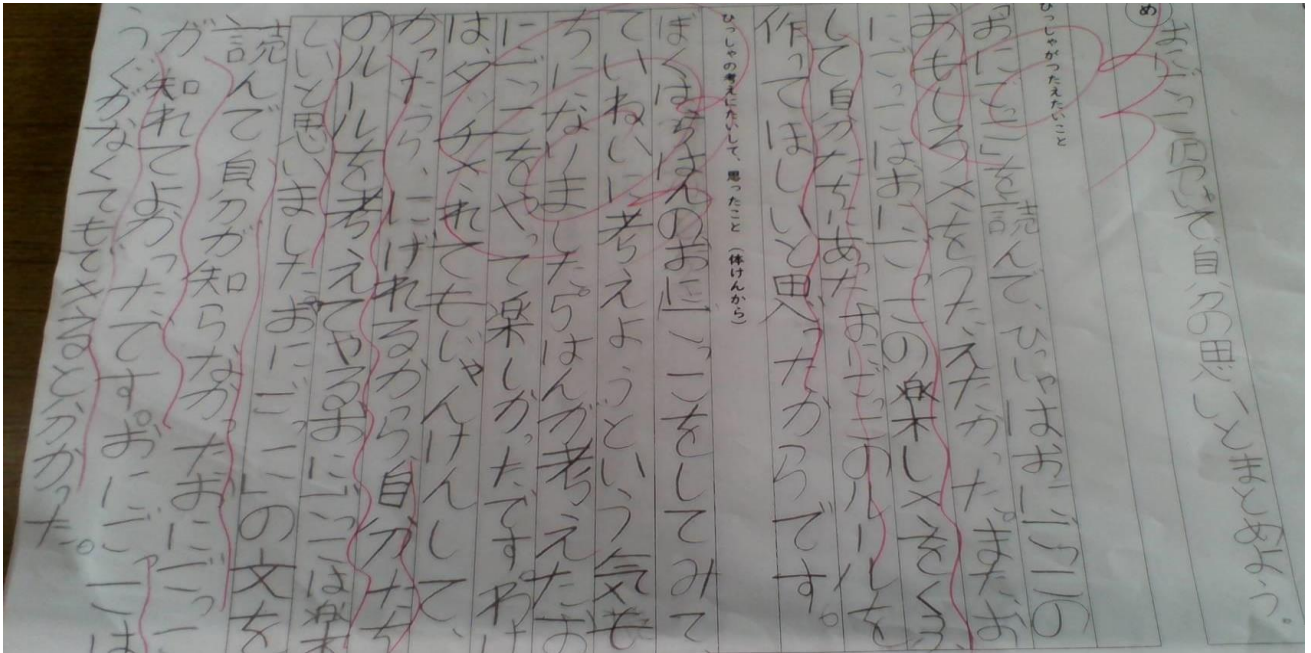 め
おにごっこ
自分の思いをまとめよう。
ひっしゃがつたえたいこと
「おにごっこ」を読んで、ひっしゃはおにごっこの
おもしろさをつたえたかった。またお
にごっこはおにごっこの楽しさをくふう
して自分たちにあったおにごっこのルールを
作ってほしいと思ったからです。
ひっしゃの考えにたいして、思ったこと (体けんから)
ぼくは5はんのおにごっこをしてみて
ていねいに考えようという気も
ちになりました。5はんが考えたお
にごっこをやって楽しかったです。わけ
は、タッチされてもじゃんけんして、
かったら、にげれるから自分たち
のルールを考えてやるおにごっこは楽
しいと思いました。おにごっこの文を
読んで自分が知らなかったおにごっこ
が知れてよかったです。おにごっこは
うぐがなくてもできるとわかった。